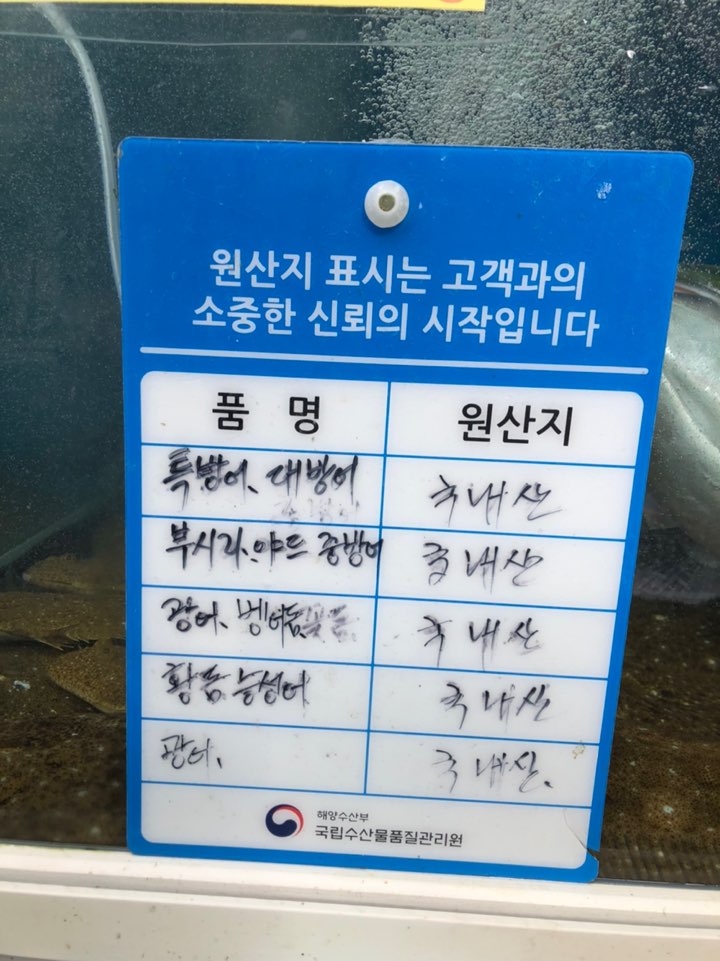 원산지 표시는 고객과의
소중한 신뢰의 시작입니다
품 명 원산지
특방어, 대방어 국내산
부시리, 야드 중방어 국내산
광어, 벵에돔, 국내산
황돔 능성어 국내산
광어, 국내산.
해양수산부
국립수산물품질관리원